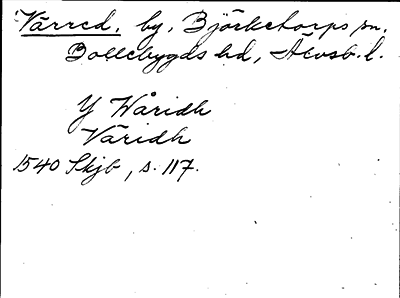 Vårred, by, Björketorps sn.
Bollebygds hd, Älvsb. l.
Y Wåridh
Våridh
1540 Skjb, s. 117.